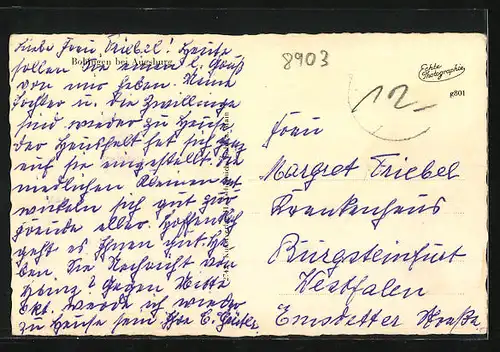 Liebe Frau Triebel! Heute
Bobingen bei Augsburg
sollen Sie einen l. Gruß
von uns haben. Meine
Tochter u. die Zwillinge
sind wieder zu Hause
der Haushalt hat sich ganz
auf sie eingestellt. Die
niedlichen Kleinen ent-
wickeln sich gut zur
Freude aller. Hoffentlich
geht es Ihnen gut. Ha-
ben Sie Nachricht von
Heinz? Gegen Mitte
Okt. werde ich wieder
zu Hause sein Ihre C.
8903
Echte
Photographie
g801
12
Frau
Margret Triebel
Krankenhaus
Burgsteinfurt
Westfalen
Emsdetter Straße